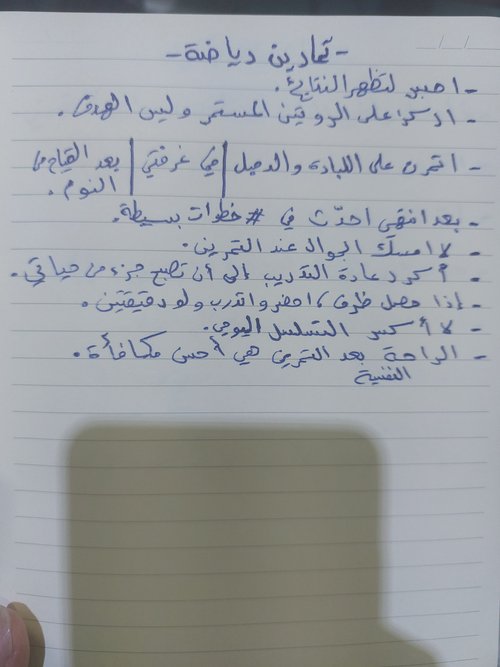 - تمارين رياضة -
- اصبر لتظهر النتائج.
- اركز على الروتين المستمر وليس الهدف.
- اتمرن على اللبادة والدمبل | في غرفتي | بعد القيام من النوم.
- بعد انتهي احدّث في # خطوات بسيطة.
- لا امسك الجوال عند التمرين.
- أكرر عادة التدريب إلى أن تصبح جزء من حياتي.
- إذا حصل ظرف، احضر واتدرب ولو دقيقتين.
- لا أكسر التسلسل اليومي.
- الراحة بعد التمرين هي أحسن مكافأة.
النفسية